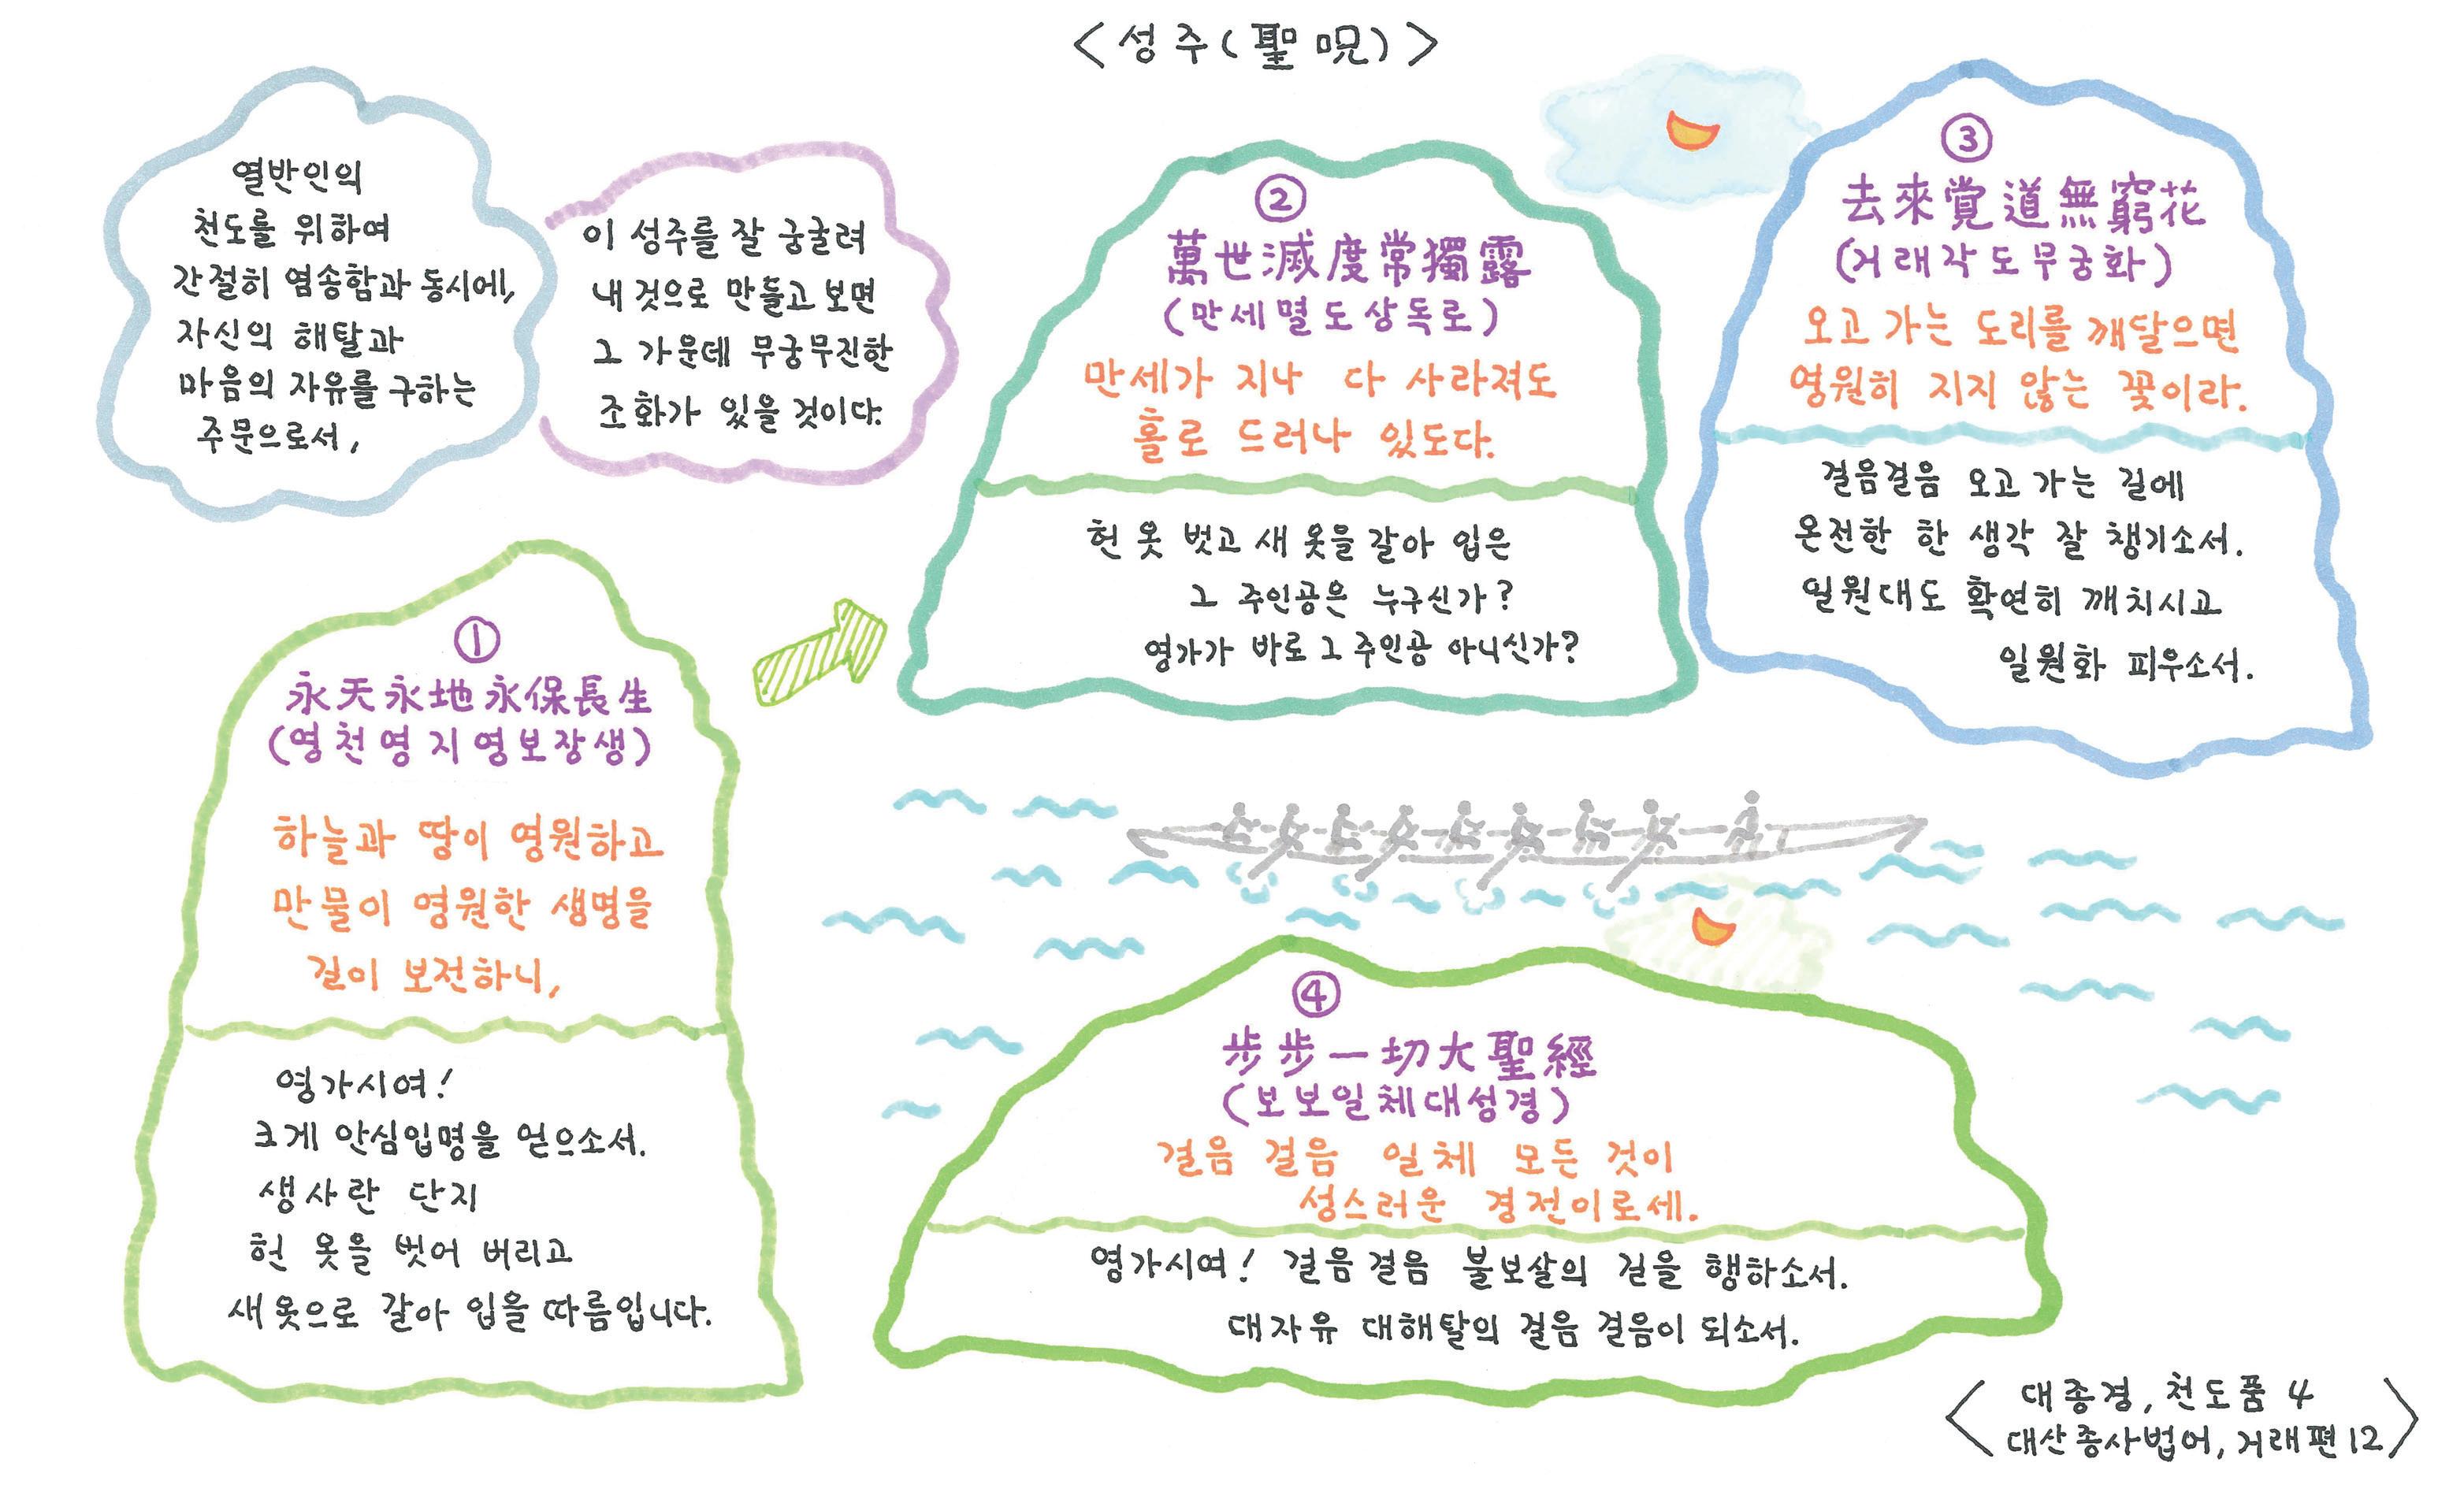 <성주(聖呪)>
열반인의
천도를 위하여
간절히 염송함과 동시에,
자신의 해탈과
마음의 자유를 구하는
주문으로서,
이 성주를 잘 궁굴려
내 것으로 만들고 보면
그 가운데 무궁무진한
조화가 있을 것이다.
①
永天永地永保長生
(영천영지영보장생)
하늘과 땅이 영원하고
만물이 영원한 생명을
길이 보전하니,
영가시여!
크게 안심입명을 얻으소서.
생사란 단지
헌 옷을 벗어 버리고
새 옷으로 갈아 입을 따름입니다.
②
萬世滅度常獨露
(만세멸도상독로)
만세가 지나 다 사라져도
홀로 드러나 있도다.
헌 옷 벗고 새 옷을 갈아 입은
그 주인공은 누구신가?
영가가 바로 그 주인공 아니신가?
③
去來覺道無窮花
(거래각도무궁화)
오고 가는 도리를 깨달으면
영원히 지지 않는 꽃이라.
걸음걸음 오고 가는 길에
온전한 한 생각 잘 챙기소서.
일원대도 확연히 깨치시고
일원화 피우소서.
④
步步一切大聖經
(보보일체대성경)
걸음 걸음 일체 모든 것이
성스러운 경전이로세.
영가시여! 걸음걸음 불보살의 길을 행하소서.
대자유 대해탈의 걸음 걸음이 되소서.
<대종경, 천도품 4
대산종사법어, 거래편 12>